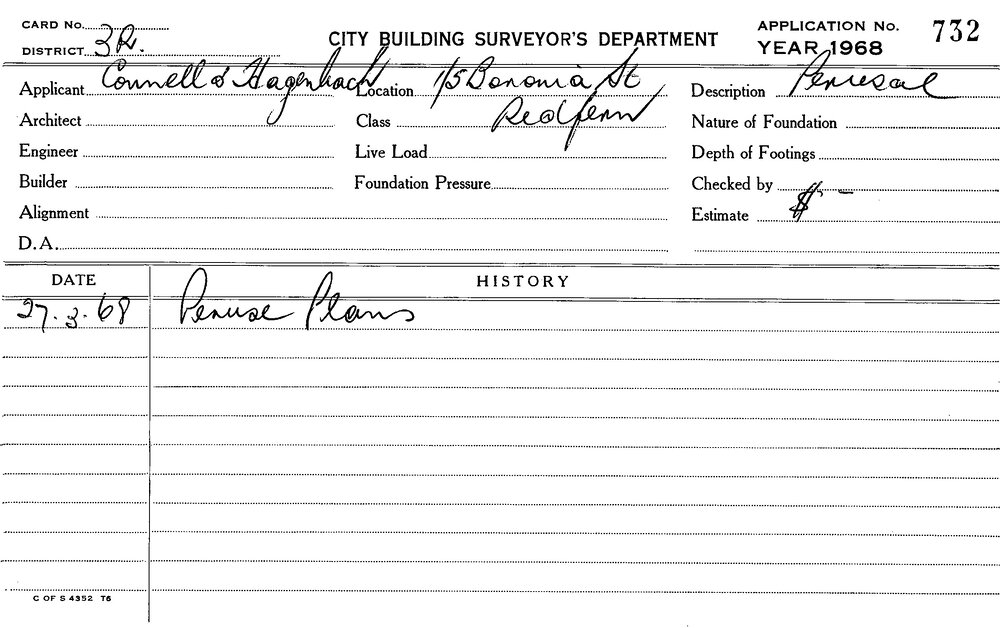 CARD No.
DISTRICT 3R.
CITY BUILDING SURVEYOR'S DEPARTMENT
APPLICATION No. 732
YEAR 1968
Applicant Connell & Hagenbach Location 1/5 Bononia St Description Perusal
Architect Class Redfern Nature of Foundation
Engineer Live Load Depth of Footings
Builder Foundation Pressure Checked by
Alignment Estimate $ -
D.A.
DATE HISTORY
27.3.68 Peruse Plans
C OF S 4352 T6